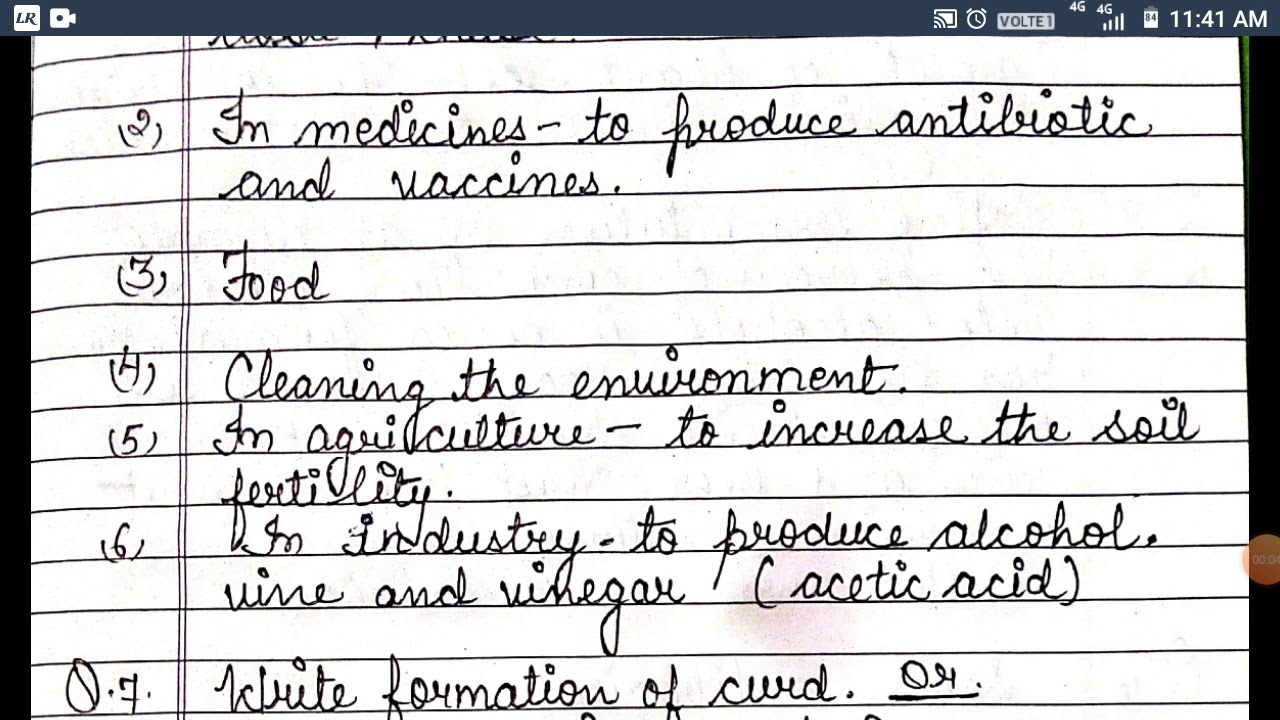 LR VOLTE1 4G 4G 84 11:41 AM
(2) In medicines - to produce antibiotic
and vaccines.
(3) Food
(4) Cleaning the environment.
(5) In agriculture - to increase the soil
fertility.
(6) In industry - to produce alcohol.
vine and vinegar (acetic acid)
00:04
Q.7. Write formation of curd. Or.